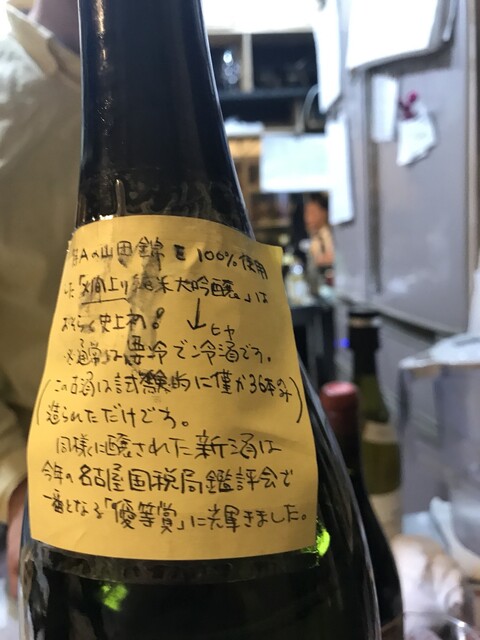 Aの山田錦を100%使用
した「火向上り純米大吟醸」は
おそらく史上初! ↓ヒヤ
※通常は要冷で冷酒です。
(この酒は試験的に僅か36本のみ
造られただけです。)
同様に醸された新酒は
今年の名古屋国税局鑑評会で
一番となる「優等賞」に光輝きました。